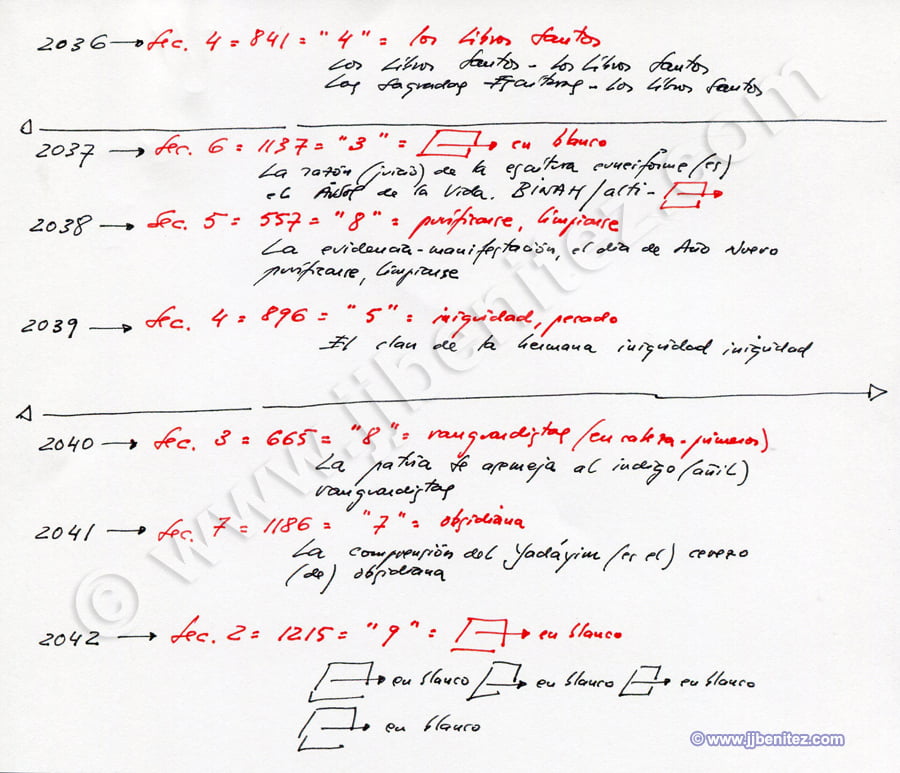 2036 → Sec. 4 = 841 = "4" = los Libros Santos
Los Libros Santos - Los Libros Santos
Las Sagradas Escrituras - Los Libros Santos
2037 → Sec. 6 = 1137 = "3" = → en blanco
La razón (juicio) de la escritura cuneiforme (es)
el Árbol de la Vida. BINAH / acti - →
2038 → Sec. 5 = 557 = "8" = purificarse, limpiarse
La evidencia-manifestación, el día de Año Nuevo
purificarse, limpiarse
2039 → Sec. 4 = 896 = "5" = iniquidad, pecado
El clan de la hermana iniquidad iniquidad
2040 → Sec. 3 = 665 = "8" = vanguardistas (en cabeza-primeros)
La patria se asemeja al indigo (añil)
vanguardistas
2041 → Sec. 7 = 1186 = "7" = obsidiana
La comprensión del Yadáyim (es el)
(de) obsidiana
2042 → Sec. 2 = 1215 = "9" = → en blanco
→ en blanco → en blanco → en blanco
→ en blanco
© www.jjbenitez.com
© www.jjbenitez.com